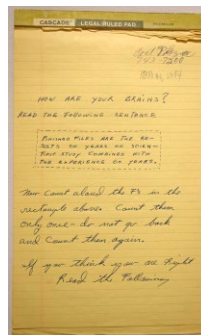 CASCADE LEGAL RULED PAD
HOW ARE YOUR BRAINS?
READ THE FOLLOWING SENTENCE
FINISHED FILES ARE THE RE-
SULTS OF YEARS OF SCIEN-
TIFIC STUDY COMBINED WITH
THE EXPERIENCE OF YEARS.
Now count aloud the F's in the
rectangle above. Count them
only once - do not go back
and Count them again.
If you think you are Right
Read the Following